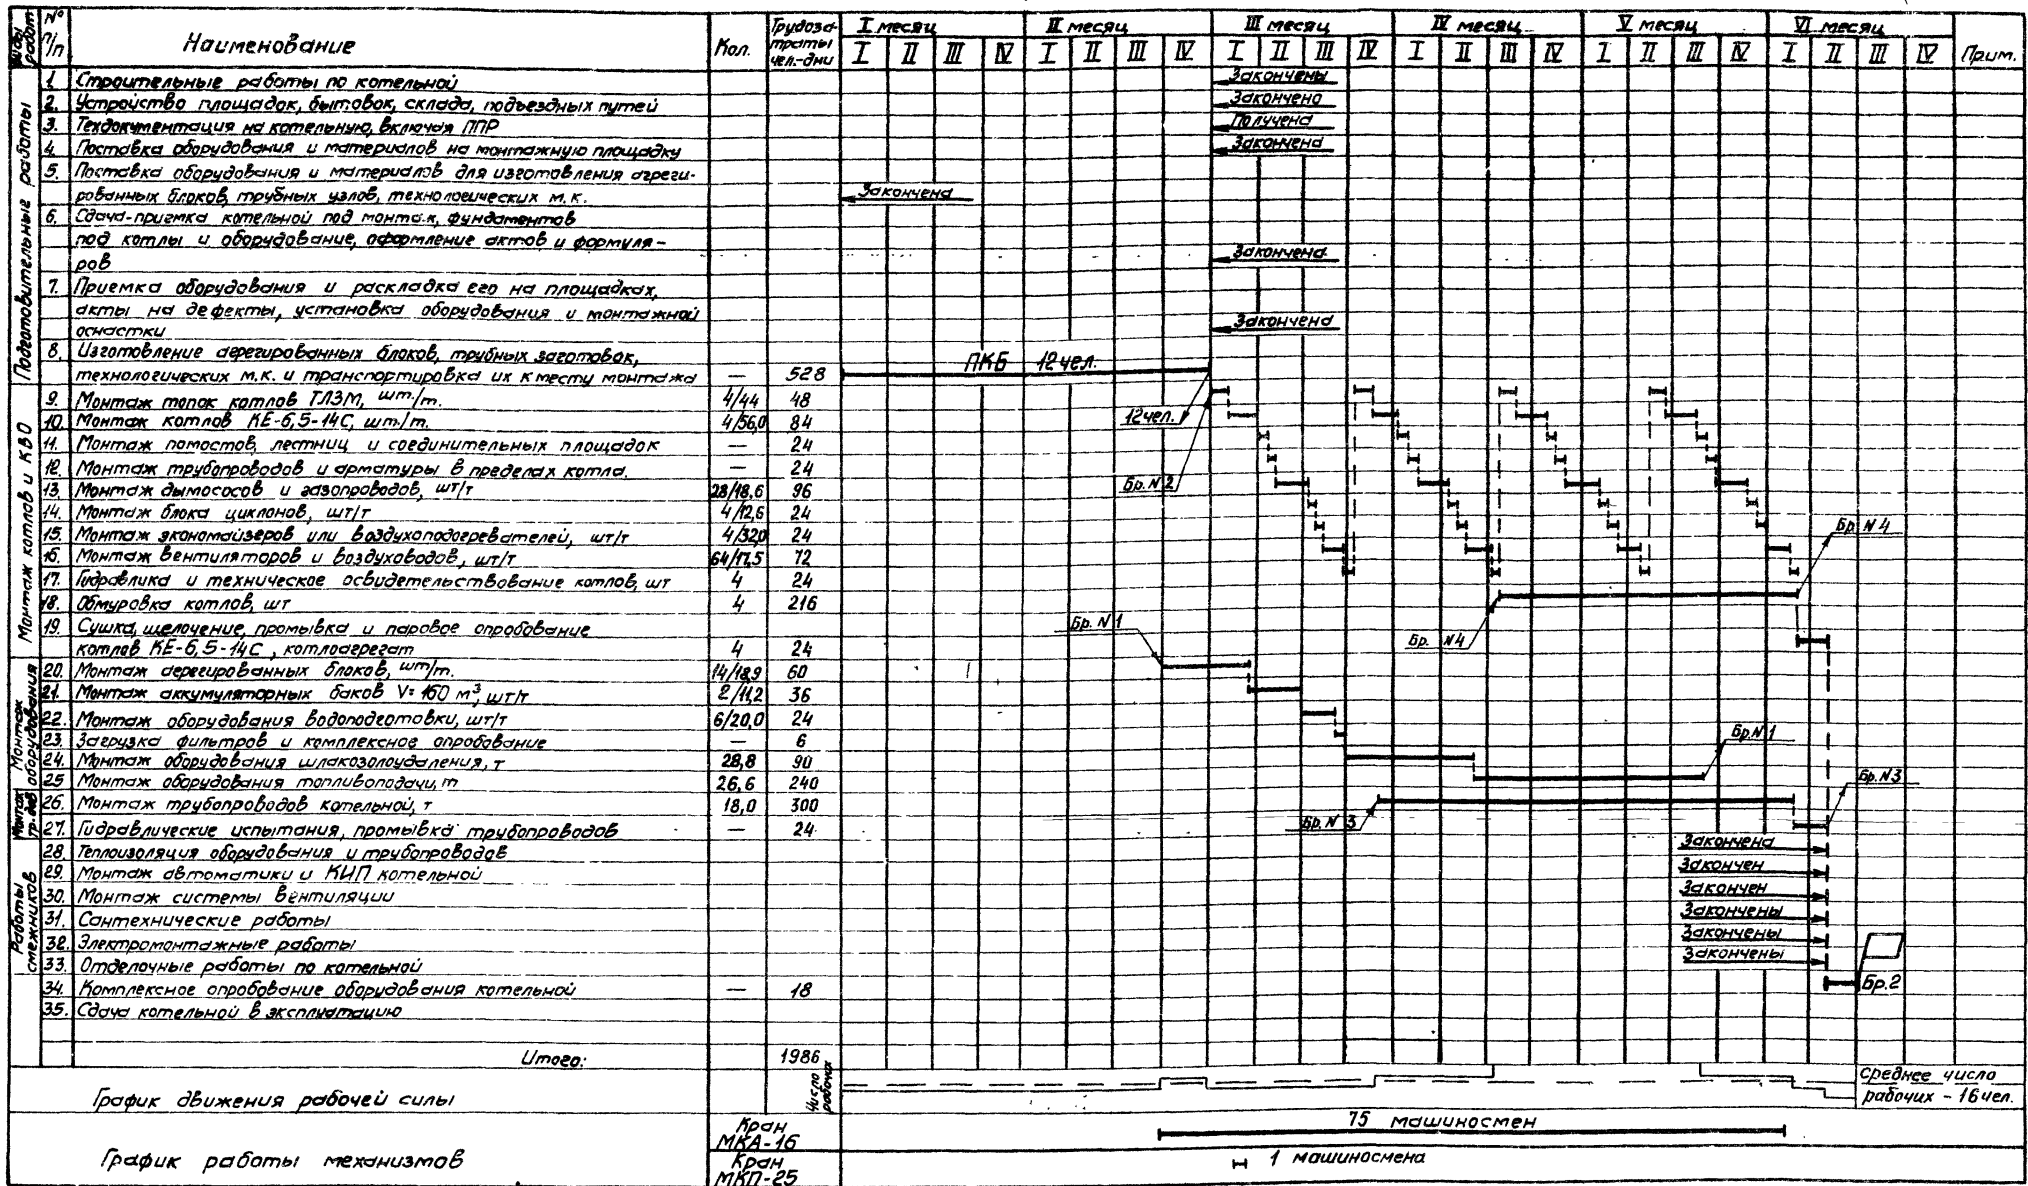 Виды работ
№ п/п
Наименование
Кол.
Трудозатраты чел.-дни
I месяц
II месяц
III месяц
IV месяц
V месяц
VI месяц
Прим.
I II III IV I II III IV I II III IV I II III IV I II III IV I II III IV
Подготовительные работы
1. Строительные работы по котельной Закончены
2. Устройство площадок, бытовок, склада, подъездных путей Закончено
3. Техдокументация на котельную, включая ППР Получена
4. Поставка оборудования и материалов на монтажную площадку Закончена
5. Поставка оборудования и материалов для изготовления агреги-
рованных блоков, трубных узлов, технологических м.к. Закончена
6. Сдача-приемка котельной под монтаж, фундаментов
под котлы и оборудование, оформление актов и формуля-
ров Закончена
7. Приемка оборудования и раскладка его на площадках,
акты на дефекты, установка оборудования и монтажной
оснастки Закончена
8. Изготовление агрегированных блоков, трубных заготовок,
технологических м.к. и транспортировка их к месту монтажа — 528 ПКБ 12 чел.
Монтаж котлов и КВО
9. Монтаж топок котлов ТЛЗМ, шт./т. 4/44 48
10. Монтаж котлов КЕ-6,5-14С, шт./т. 4/56,0 84 12 чел.
11. Монтаж помостов, лестниц и соединительных площадок — 24
12. Монтаж трубопроводов и арматуры в пределах котла. — 24
13. Монтаж дымососов и газопроводов, шт/т 28/18,6 96 Бр. N 2
14. Монтаж блока циклонов, шт/т 4/12,6 24
15. Монтаж экономайзеров или воздухоподогревателей, шт/т 4/32,0 24 Бр. N 4
16. Монтаж вентиляторов и воздуховодов, шт/т 64/17,5 72
17. Гидравлика и техническое освидетельствование котлов, шт 4 24
18. Обмуровка котлов, шт 4 216
19. Сушка, щелочение, промывка и паровое опробование Бр. N 1
котлов КЕ-6,5-14С, котлоагрегат 4 24 Бр. N4
Монтаж оборудования
20. Монтаж агрегированных блоков, шт/т. 14/18,9 60
21. Монтаж аккумуляторных баков V= 160 м³, шт/т 2/11,2 36
22. Монтаж оборудования водоподготовки, шт/т 6/20,0 24
23. Загрузка фильтров и комплексное опробование — 6 Бр.N 1
24. Монтаж оборудования шлакозолоудаления, т 28,8 90
25 Монтаж оборудования топливоподачи, т 26,6 240 Бр. N3
Монтаж тр-дов
26. Монтаж трубопроводов котельной, т 18,0 300
27. Гидравлические испытания, промывка трубопроводов — 24 Бр. N 3
Работы смежников
28. Теплоизоляция оборудования и трубопроводов Закончена
29. Монтаж автоматики и КИП котельной Закончен
30. Монтаж системы вентиляции Закончен
31. Сантехнические работы Закончены
32. Электромонтажные работы Закончены
33. Отделочные работы по котельной Закончены
34. Комплексное опробование оборудования котельной — 18 Бр.2
35. Сдача котельной в эксплуатацию
Итого: 1986
График движения рабочей силы
Число рабочих
среднее число
рабочих - 16 чел.
График работы механизмов
Кран
МКА-16
75 машиносмен
Кран
МКП-25
1 машиносмена